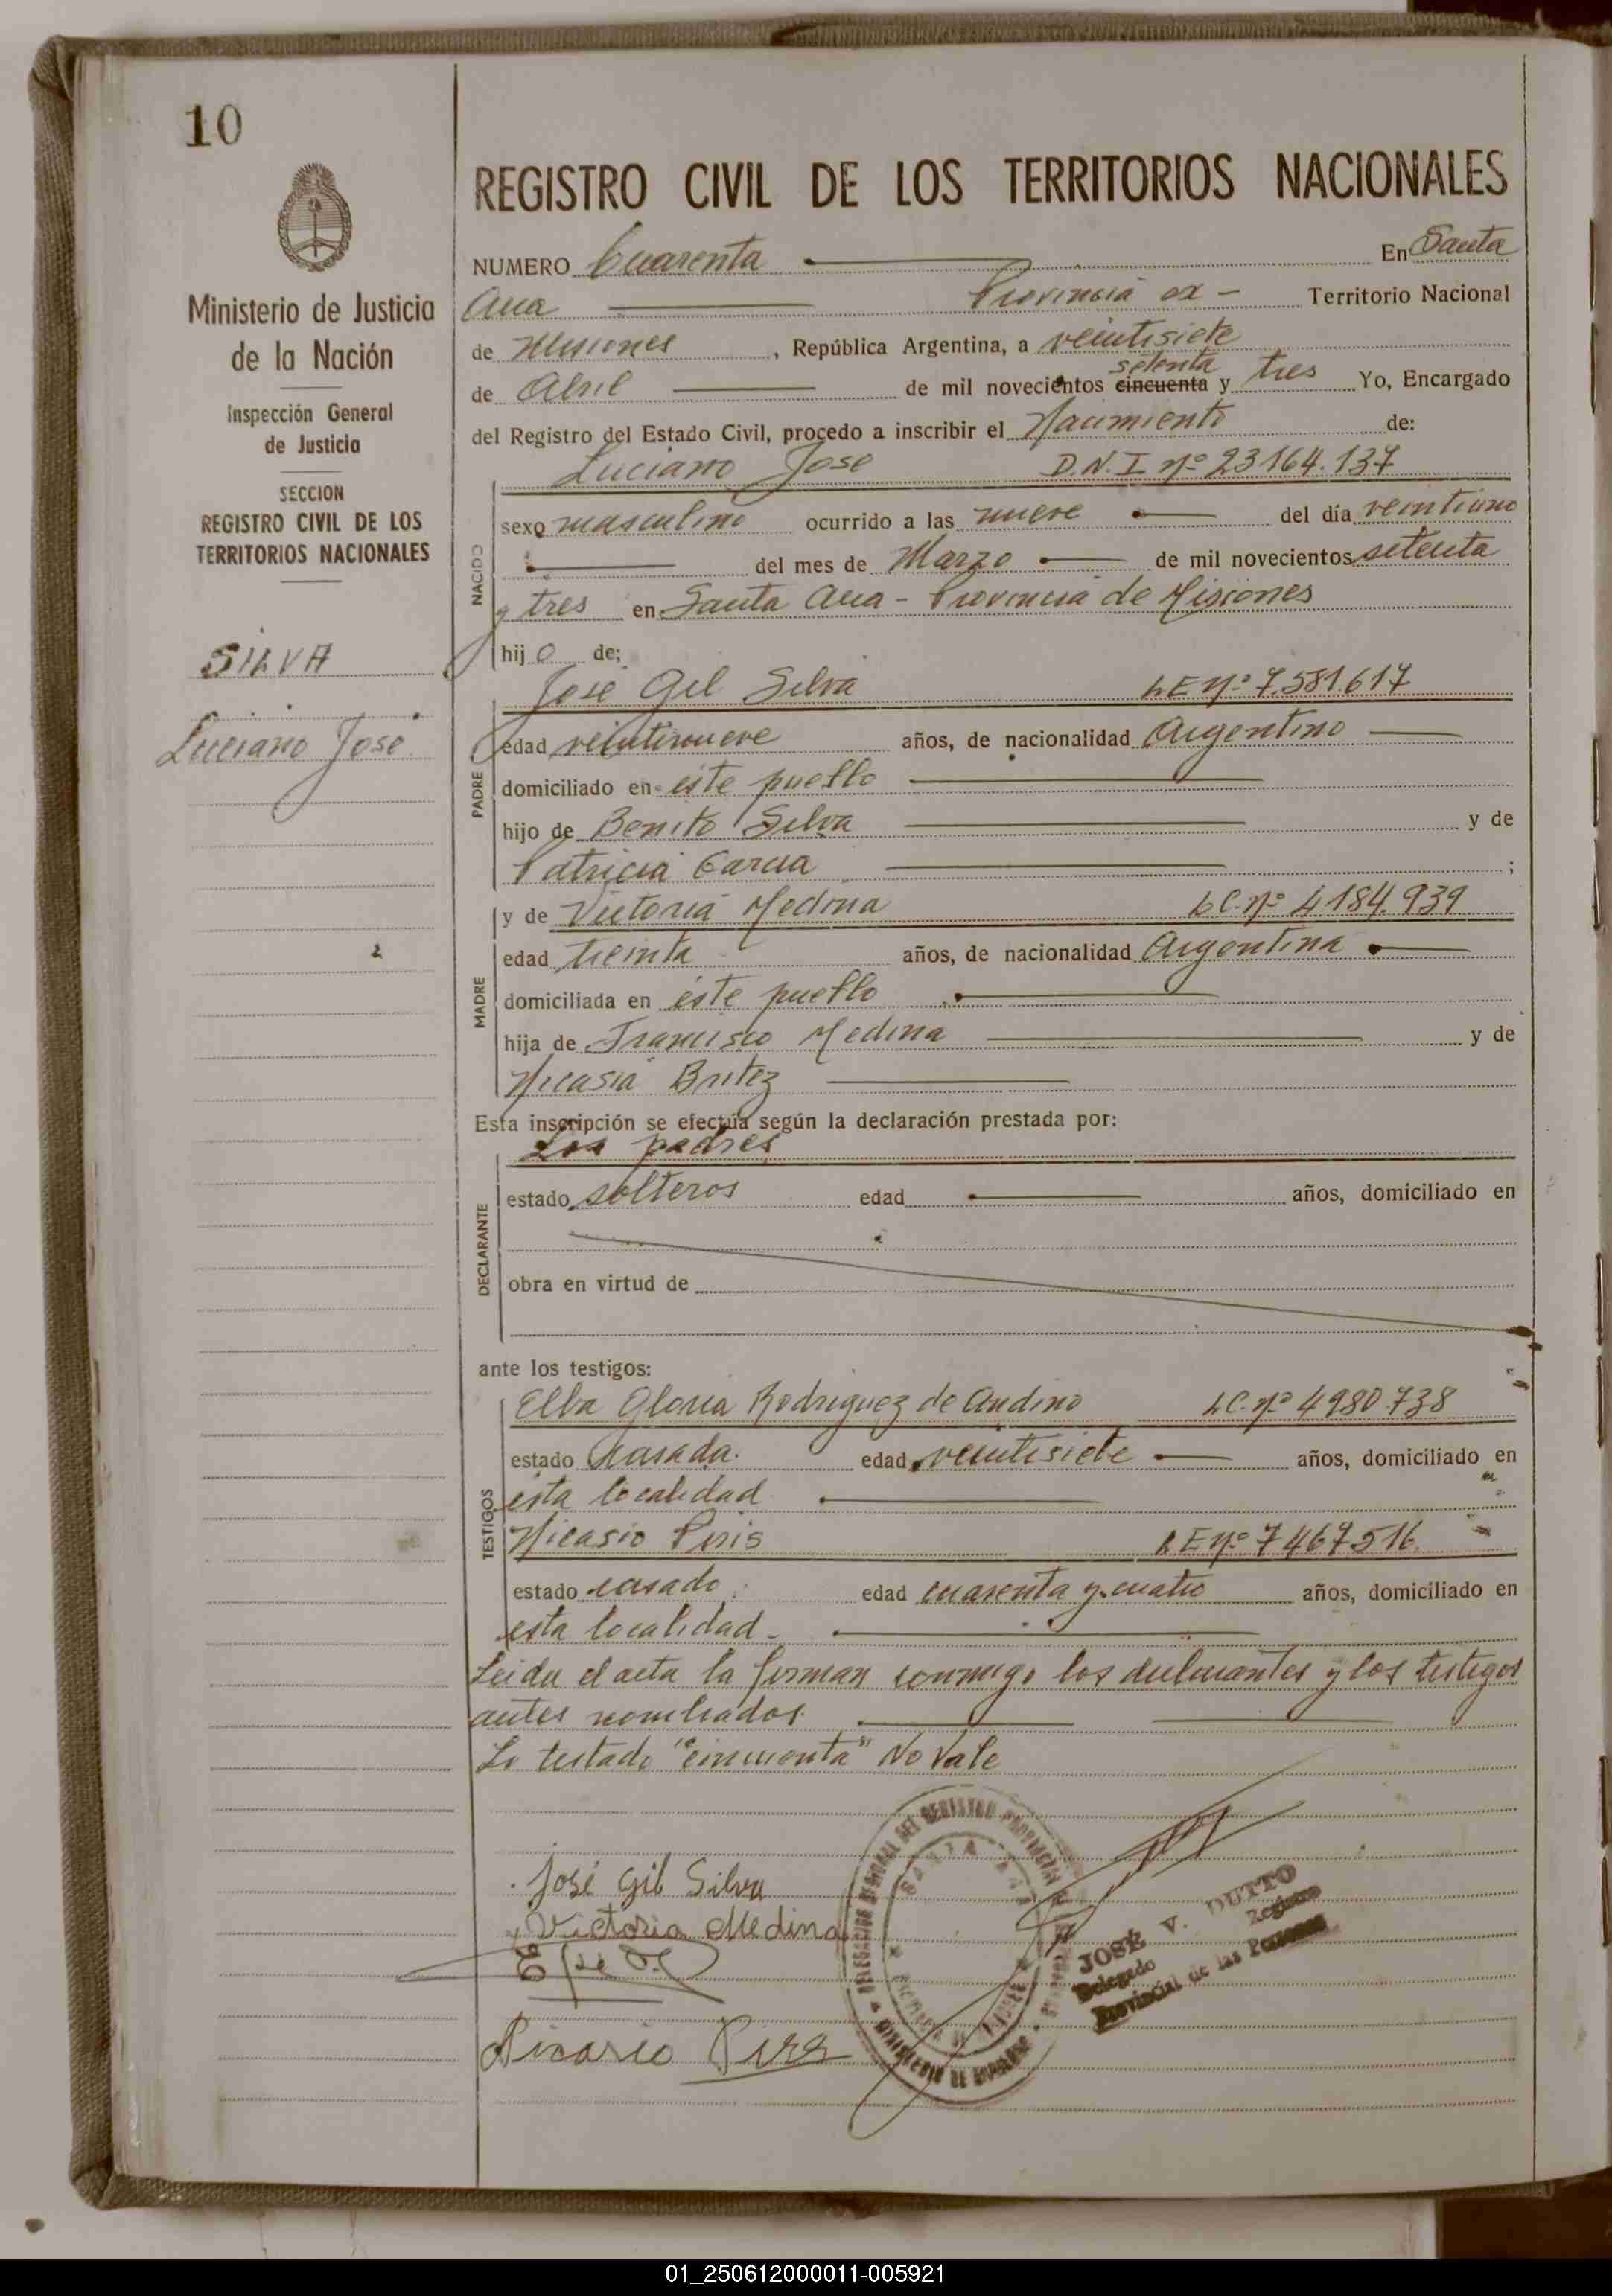 10
Ministerio de Justicia
de la Nación
Inspección General
de Justicia
SECCION
REGISTRO CIVIL DE LOS
TERRITORIOS NACIONALES
SILVA
Luciano José
REGISTRO CIVIL DE LOS TERRITORIOS NACIONALES
NUMERO Cuarenta En Santa
Ana Provincia ex - Territorio Nacional
de Misiones, República Argentina, a veintisiete
setenta
de Abril de mil novecientos cincuenta y tres Yo, Encargado
del Registro del Estado Civil, procedo a inscribir el Nacimiento de:
Luciano Jose D.N.I nº 23164.137
NACIDO
sexo masculino ocurrido a las nueve del día veintiuno
del mes de Marzo de mil novecientos setenta
y tres en Santa Ana - Provincia de Misiones
hijo de;
José Gil Silva LE nº 7.581.617
PADRE
edad veintinueve años, de nacionalidad Argentino
domiciliado en este pueblo
hijo de Benito Silva y de
Patricia Garcia ;
MADRE
y de Victoria Medina LC. nº 4184.939
edad treinta años, de nacionalidad Argentina
domiciliada en este pueblo
hija de Francisco Medina y de
Nicasia Britez
Esta inscripción se efectúa según la declaración prestada por:
Los padres
DECLARANTE
estado solteros edad años, domiciliado en
obra en virtud de
ante los testigos:
TESTIGOS
Elba Gloria Rodriguez de Andino LC. nº 4980.738
estado Casada. edad veintisiete años, domiciliado en
esta localidad
Nicasio Piris LE nº 7467516.
estado casado edad cuarenta y cuatro años, domiciliado en
esta localidad -
Leida el acta la firman conmigo los declarantes y los testigos
antes nombrados.
Lo testado "cincuenta" No Vale
José Gil Silva
Victoria Medina
SANTA ANA
JOSE V. DUTTO
Delegado Registro
Provincial de las Personas
01_250612000011-005921